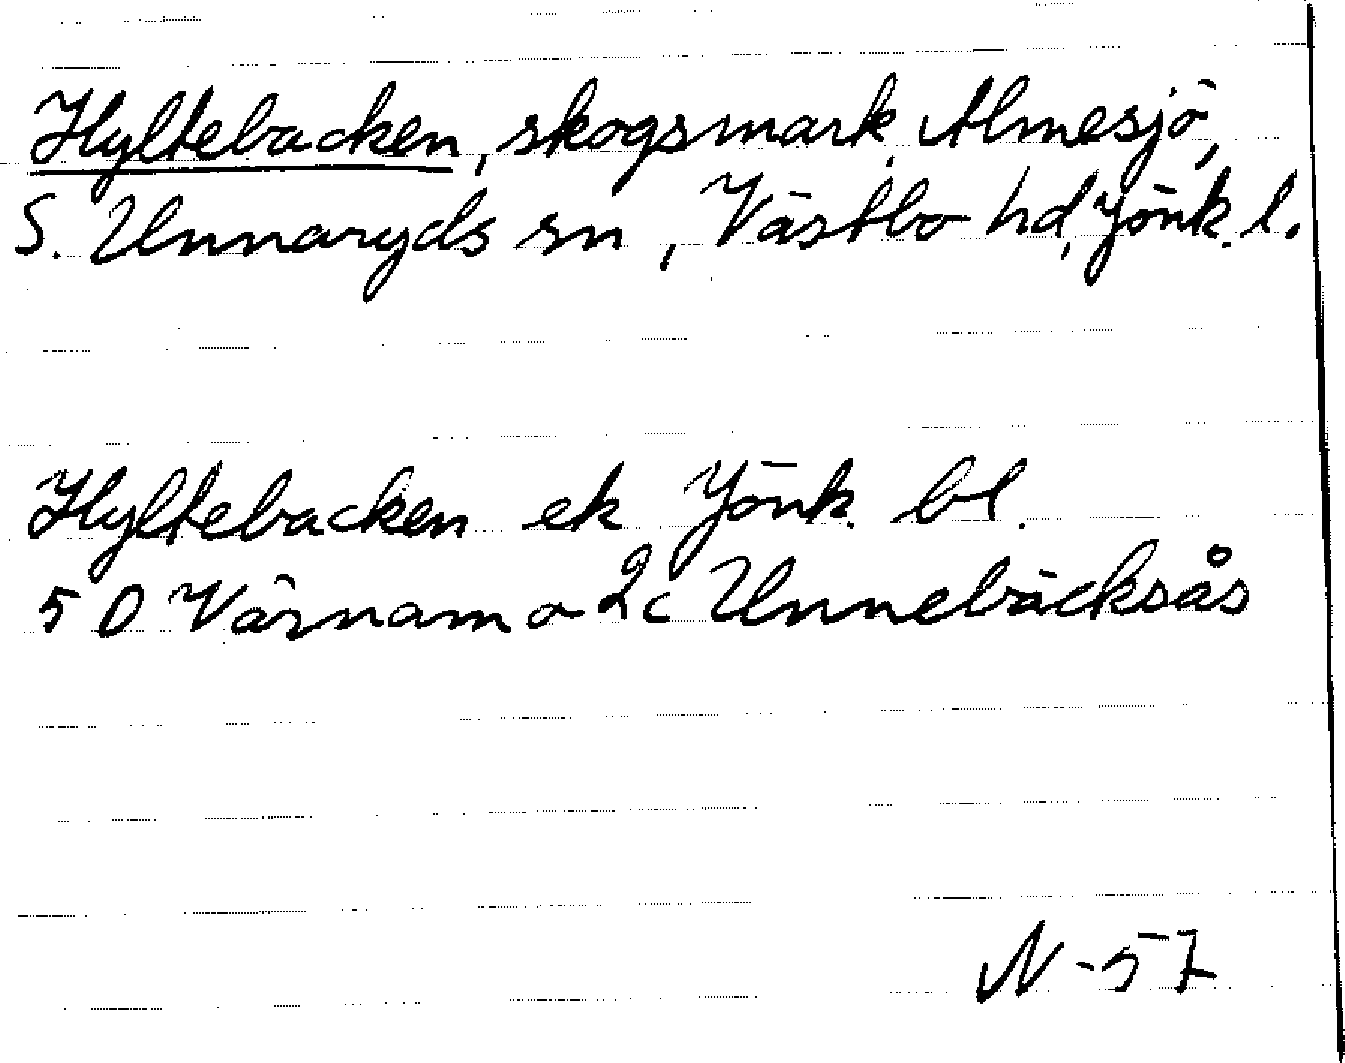 Hyltebacken, skogsmark, Almesjö,
S. Unnaryds sn, Västbo hd, Jönk. l.
Hyltebacken ek Jönk. bl.
5 D Värnamo 2c Unnebäcksås
N-57